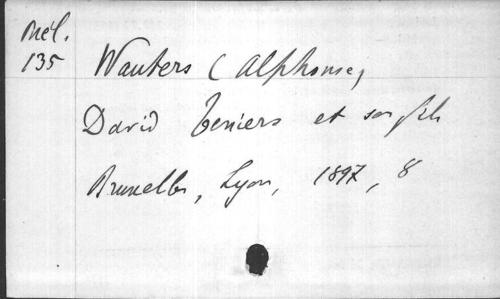 Mél.
135
Wauters (Alphonse)
David Teniers et son fils
Bruxelles, Lyon, 1897, 8